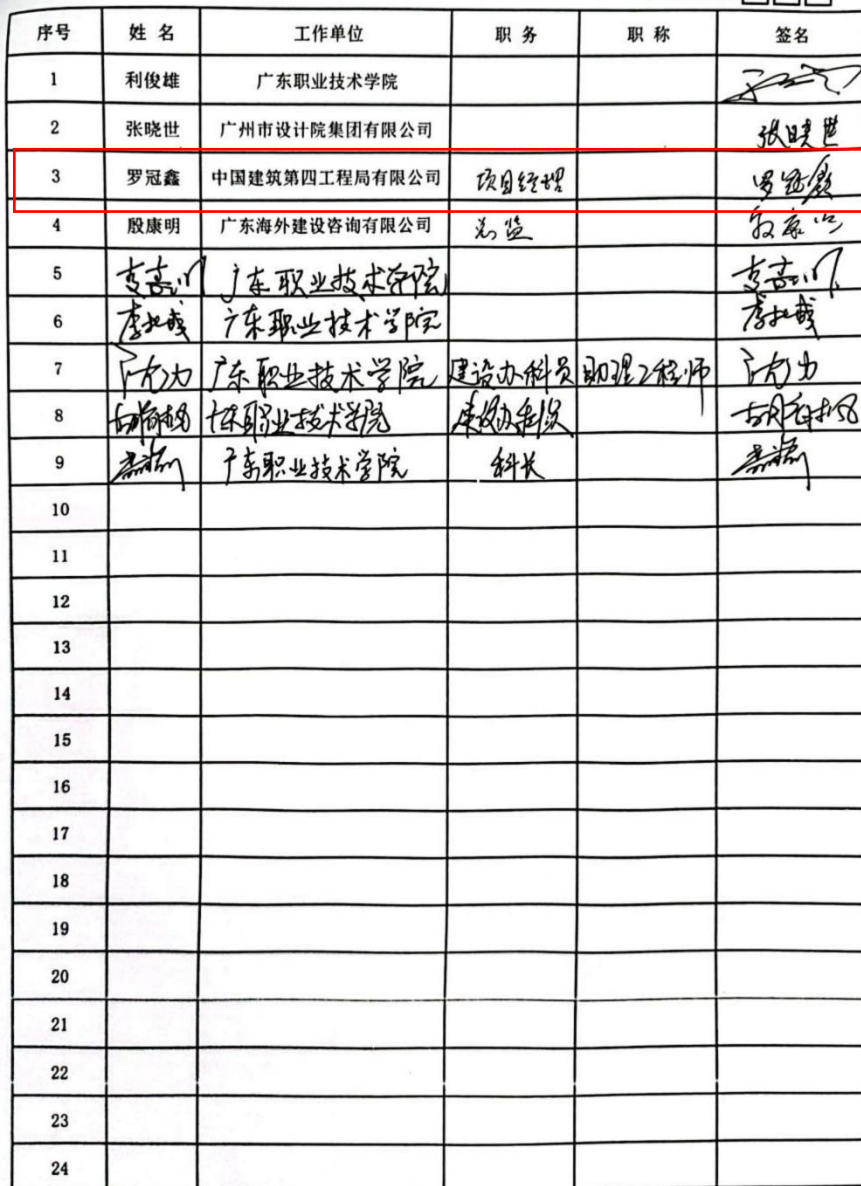 序号 姓名 工作单位 职务 职称 签名
1 利俊雄 广东职业技术学院
2 张晓世 广州市设计院集团有限公司 张晓世
3 罗冠鑫 中国建筑第四工程局有限公司 项目经理 罗冠鑫
4 殷康明 广东海外建设咨询有限公司 总监 殷康明
5 广东职业技术学院
6 广东职业技术学院
7 广东职业技术学院 建设办科员 助理工程师
8 广东职业技术学院 建设办科员
9 广东职业技术学院 科长
10
11
12
13
14
15
16
17
18
19
20
21
22
23
24